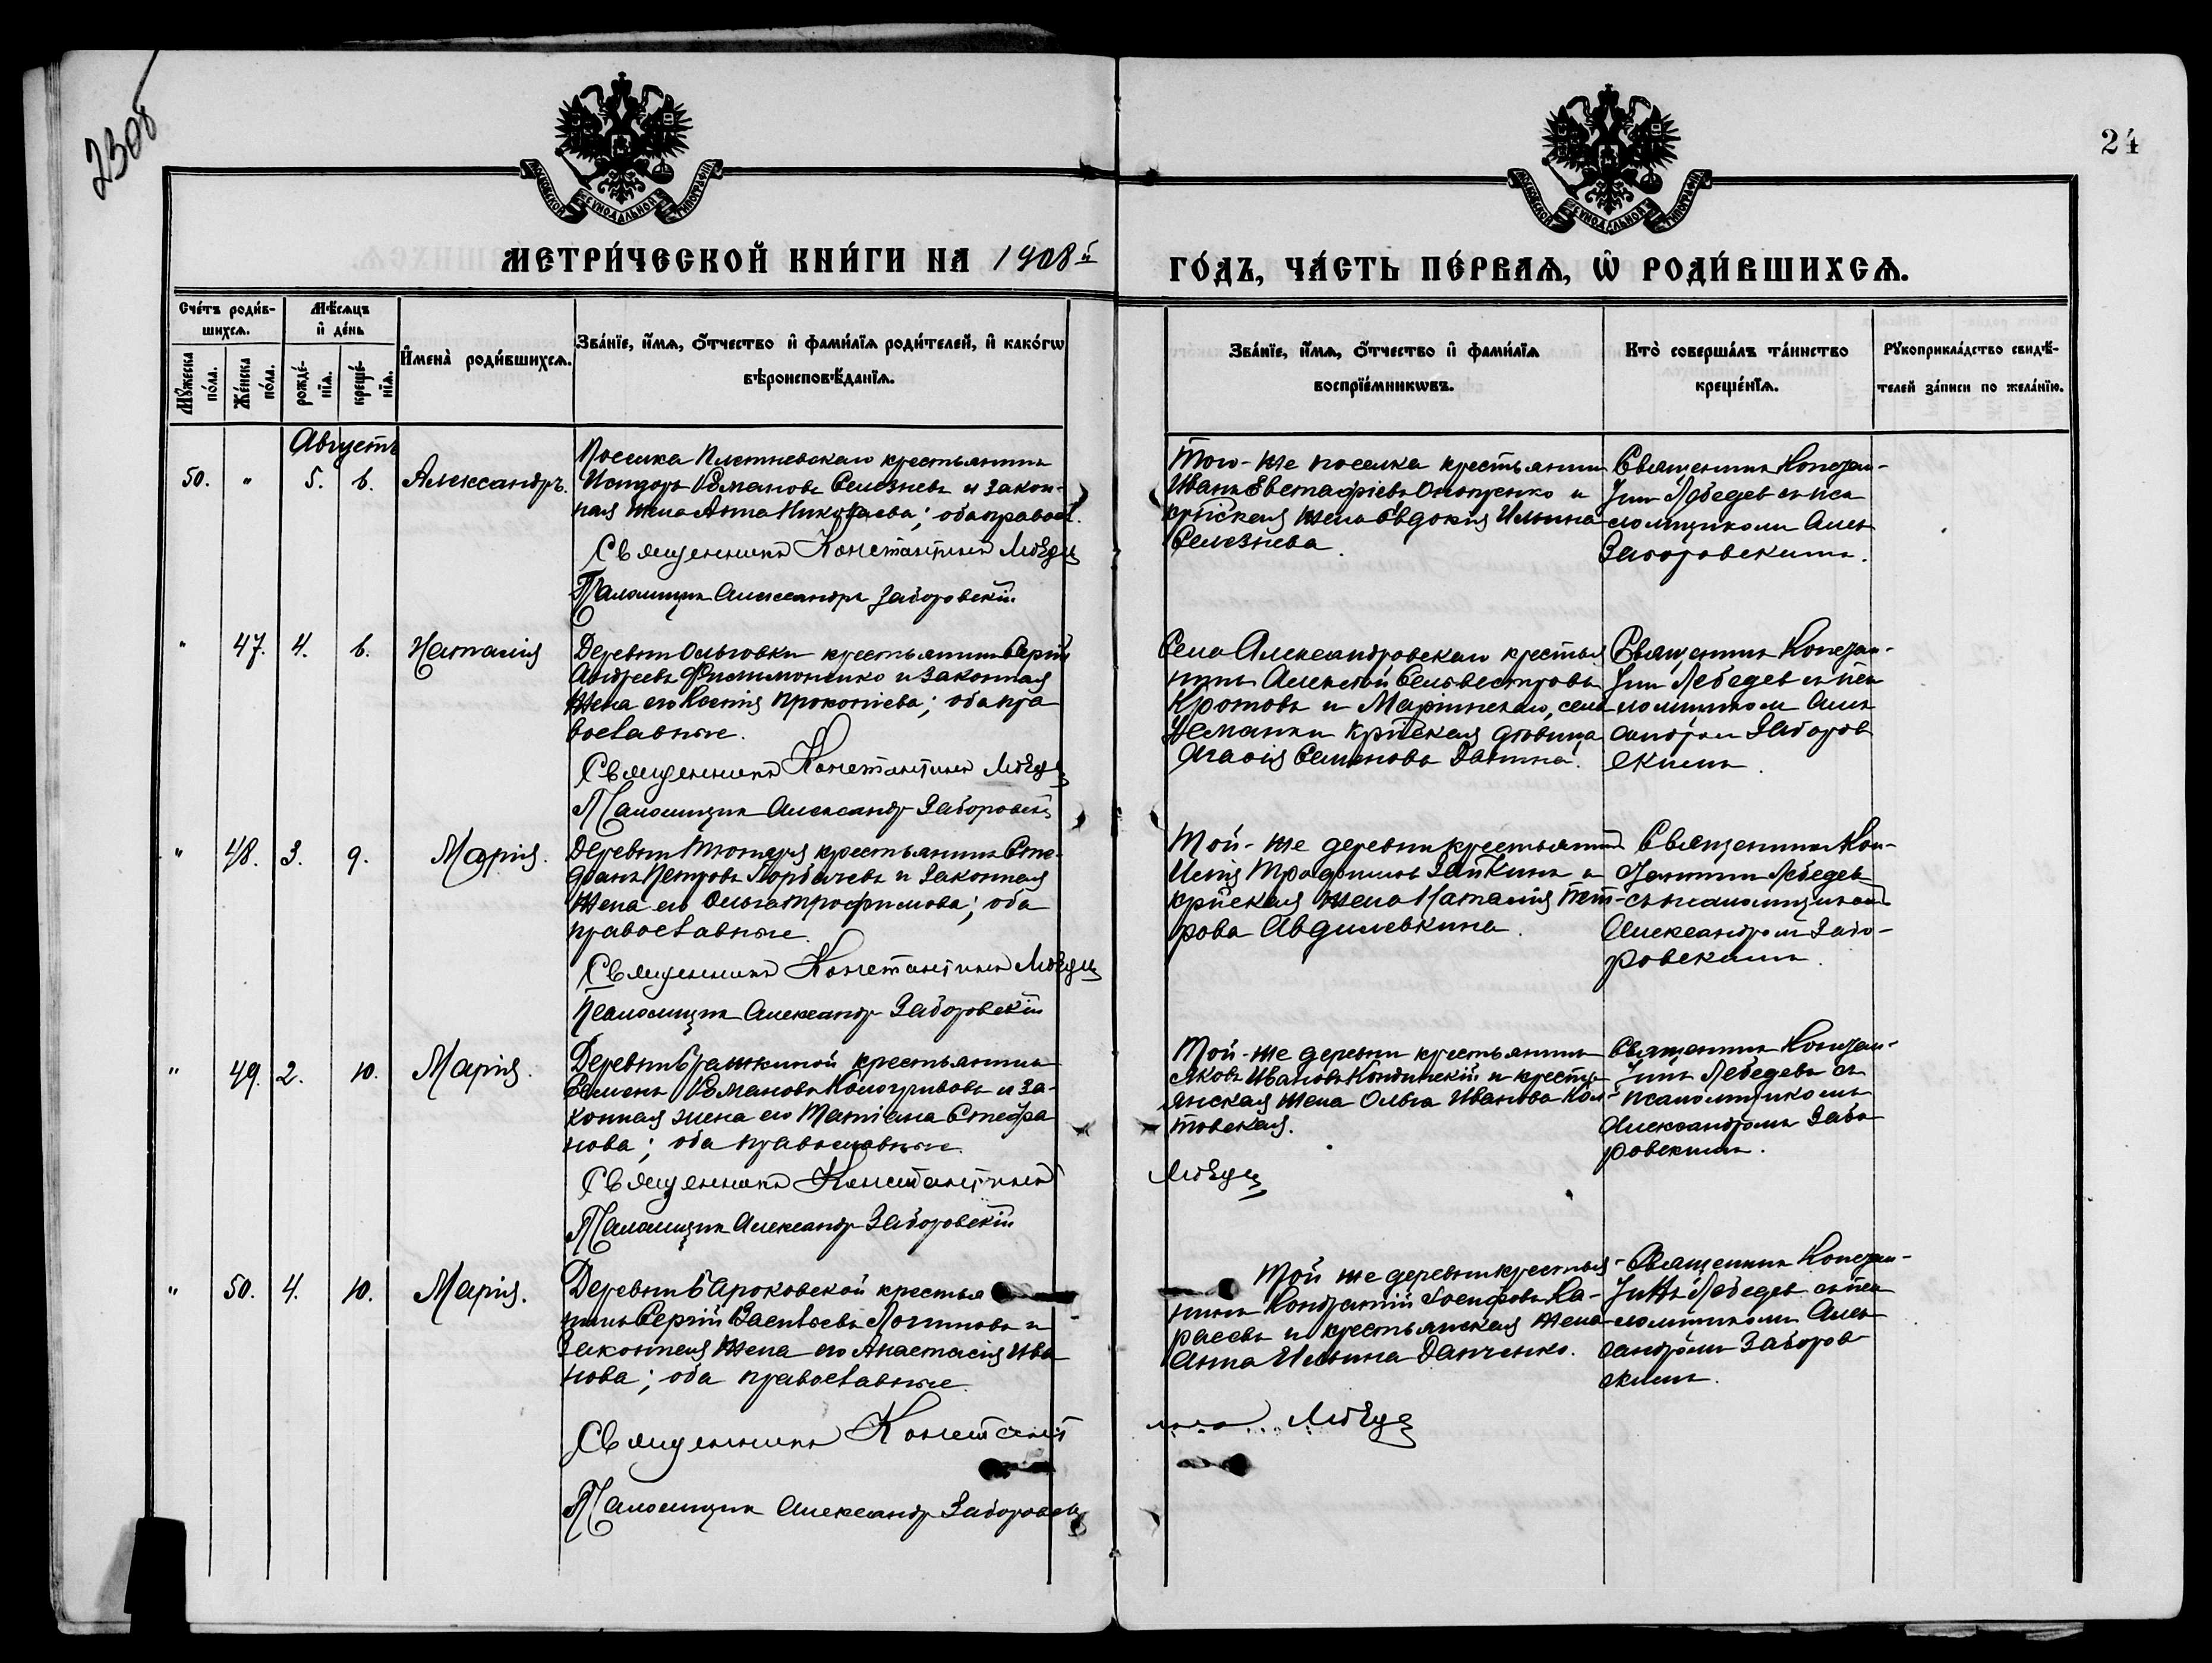 2308
24
МОСКОВСКОЙ СѴНОДАЛЬНОЙ ТИПОГРАФІИ
МОСКОВСКОЙ СѴНОДАЛЬНОЙ ТИПОГРАФІИ
МЕТРИ́ЧЕСКОЙ КНИ́ГИ НА 1908й
ГО́ДЪ, ЧА́СТЬ ПЕ́РВАѦ, Ѿ РОДИ́ВШИХСѦ.
Сче́тъ роди́в-
шихсѧ.
Мꙋжеска по́ла.
Же́нска по́ла.
Мѣ́сѧцъ
и҆ де́нь
рожде́-
нїѧ.
креще́-
нїѧ.
И҆мена̀ роди́вшихсѧ.
Зва́нїе, и҆́мѧ, о҆́тчество и҆ фами́лїѧ роди́телей, и҆ како́гѡ
вѣроисповѣ́данїѧ.
Зва́нїе, и҆́мѧ, о҆́тчество и҆ фами́лїѧ
воспрїе́мникѡвъ.
Кто̀ соверша́лъ та́инство
креще́нїѧ.
Рꙋкоприкла́дство свидѣ́-
телей за́писи по жела́нїю.
Августъ
50. " 5. 6. Александръ.
Поселка Плетневскаго крестьянинъ
Исидоръ Романовъ Селезневъ и закон-
ная жена Анна Николаева; оба правосл.
Священникъ Константинъ Лебедевъ
Псаломщикъ Александръ Заборовскій
Того-же поселка крестьянинъ
Иванъ Евстафіевъ и
крестьянская жена Евдокія Ильина
Селезнева.
Священникъ Констан-
тинъ Лебедевъ съ пса
ломщикомъ Алек
Заборовскимъ.
" 47. 4. 6. Наталія
Деревни Ольговки крестьянинъ Сергій
Андреевъ Филимоненко и законная
жена его Ксенія Прокопіева; оба пра
вославные.
Священникъ Константинъ Лебедевъ
Псаломщикъ Александръ Заборовскій
Села Александровскаго крестья
нинъ Алексѣй Сельвестровъ
Кротовъ и Маріинскаго, села
крестьянская дѣвица
Агафія Семенова
Священникъ Констан-
тинъ Лебедевъ съ пса
ломщикомъ Алек
сандромъ Заборов
скимъ.
" 48. 3. 9. Марія.
Деревни крестьянинъ Сте-
фанъ Петровъ Горбачевъ и законная
жена его Ольга Трофимова; оба
православные.
Священникъ Константинъ Лебедевъ
Псаломщикъ Александръ Заборовскій
Той-же деревни крестьянинъ
Трофимовъ Заикинъ и
крестьянская жена Наталія Пет-
рова Авдюшкина.
Священникъ Кон-
стантинъ Лебедевъ
съ псаломщикомъ
Александромъ Забо-
ровскимъ.
" 49. 2. 10. Марія.
Деревни крестьянинъ
Семенъ Романовъ Кологривовъ и за-
конная жена его Татіана Стефа
нова; оба православные.
Священникъ Константинъ
Лебедевъ
Псаломщикъ Александръ Заборовскій
Той-же деревни крестьянинъ
Яковъ Ивановъ и кресть
янская жена Ольга Иванова
товская.
Священникъ Констан-
тинъ Лебедевъ съ
псаломщикомъ
Александромъ Забо
ровскимъ.
" 50. 4. 10. Марія.
Деревни крестья
нинъ Сергій Васильевъ Логиновъ и
законная жена его Анастасія Ива
нова; оба православные.
Священникъ Константинъ
Лебедевъ
Псаломщикъ Александръ Заборовскій
Той же деревни крестья-
нинъ Кондратій Іосифовъ Ка-
и крестьянская жена
Анна Ильина Данченко.
Священникъ Констан-
тинъ Лебедевъ съ пса
ломщикомъ Алек
сандромъ Заборов
скимъ.